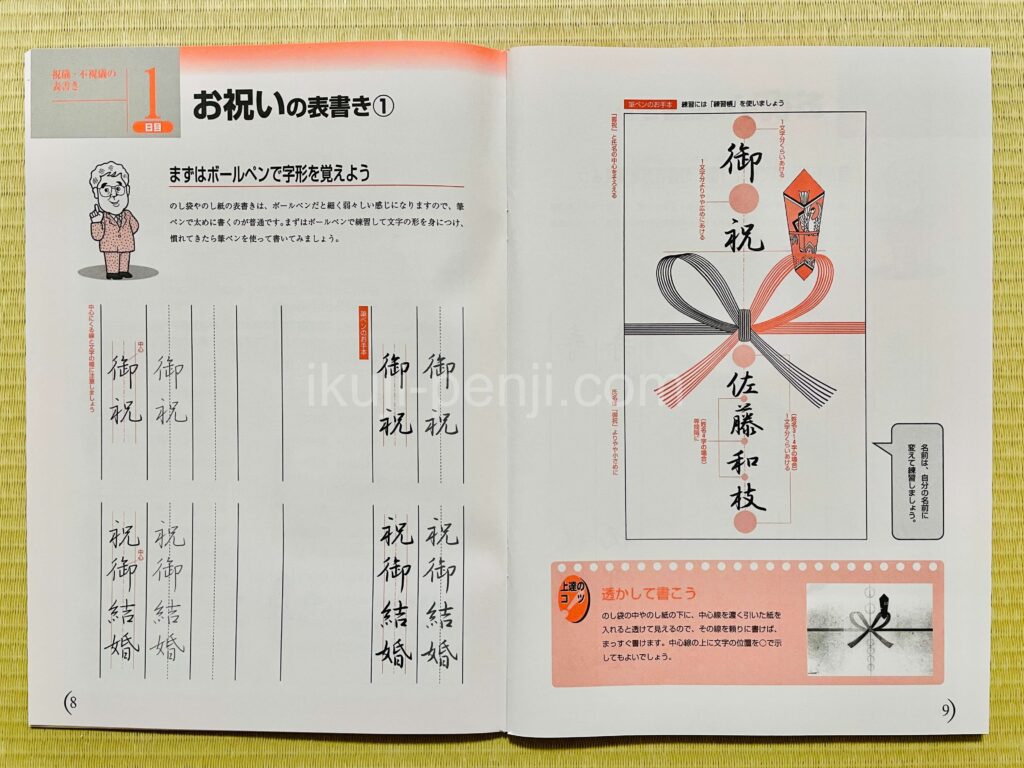 祝儀・不祝儀の
表書き
1
日目
お祝いの表書き①
まずはボールペンで字形を覚えよう
のし袋やのし紙の表書きは、ボールペンだと細く弱々しい感じになりますので、筆
ペンで太めに書くのが普通です。まずはボールペンで練習して文字の形を身につけ、
慣れてきたら筆ペンを使って書いてみましょう。
中心にくる線と文字の幅に注意しましょう
中心
御祝
御祝
筆ペンのお手本
御祝
御祝
中心
祝御結婚
祝御結婚
祝御結婚
祝御結婚
8
筆ペンのお手本
練習には「練習帳」を使いましょう
「御祝」と氏名の中心をそろえる
1文字分くらいあける
1文字分よりやや広めにあける
御祝
氏名は「御祝」よりやや小さめに
(姓名4字の場合)
等間隔に
(姓名3〜4字の場合)
1文字分くらいあける
佐藤和枝
名前は、自分の名前に
変えて練習しましょう。
上達の
コツ
透かして書こう
のし袋の中やのし紙の下に、中心線を濃く引いた紙を
入れると透けて見えるので、その線を頼りに書けば、
まっすぐ書けます。中心線の上に文字の位置を○で示
してもよいでしょう。
9
ikuji-penji.com